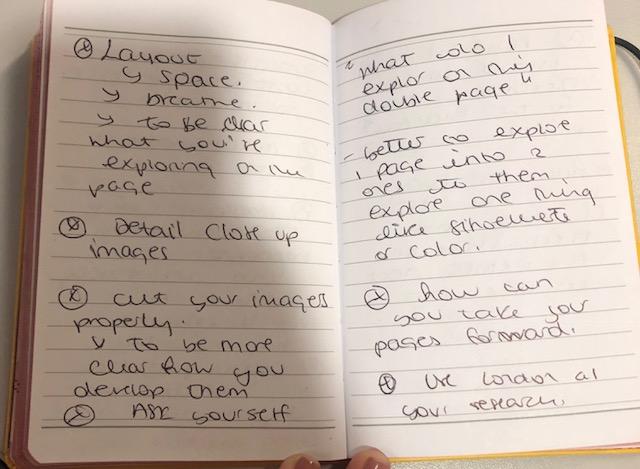 Layout
↳ space.
↳ breathe.
↳ to be clear
what you're
exploring on the
page
Detail close up
images
cut your images
properly.
↳ To be more
clear how you
develop them
ASK yourself
"what do I
explor on my
double page"
- better to explore
1 page into 2
ones to them
explore one thing
like silhouette
or color.
How can
you take your
pages forward.
Use London as
your research.